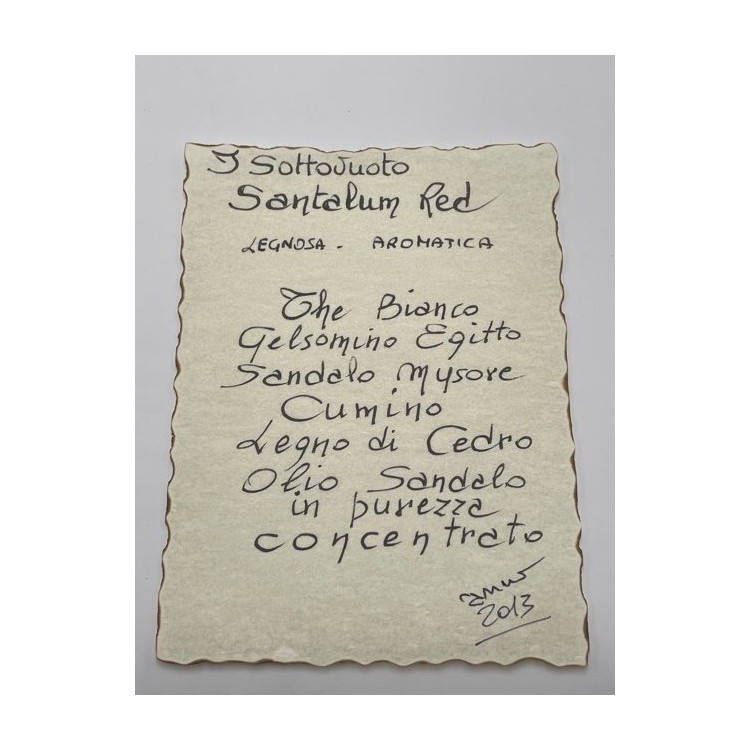 I Sottovuoto
Santalum Red
LEGNOSA - AROMATICA
The Bianco
Gelsomino Egitto
Sandalo Mysore
Cumino
Legno di Cedro
Olio Sandalo
in purezza
concentrato
2013